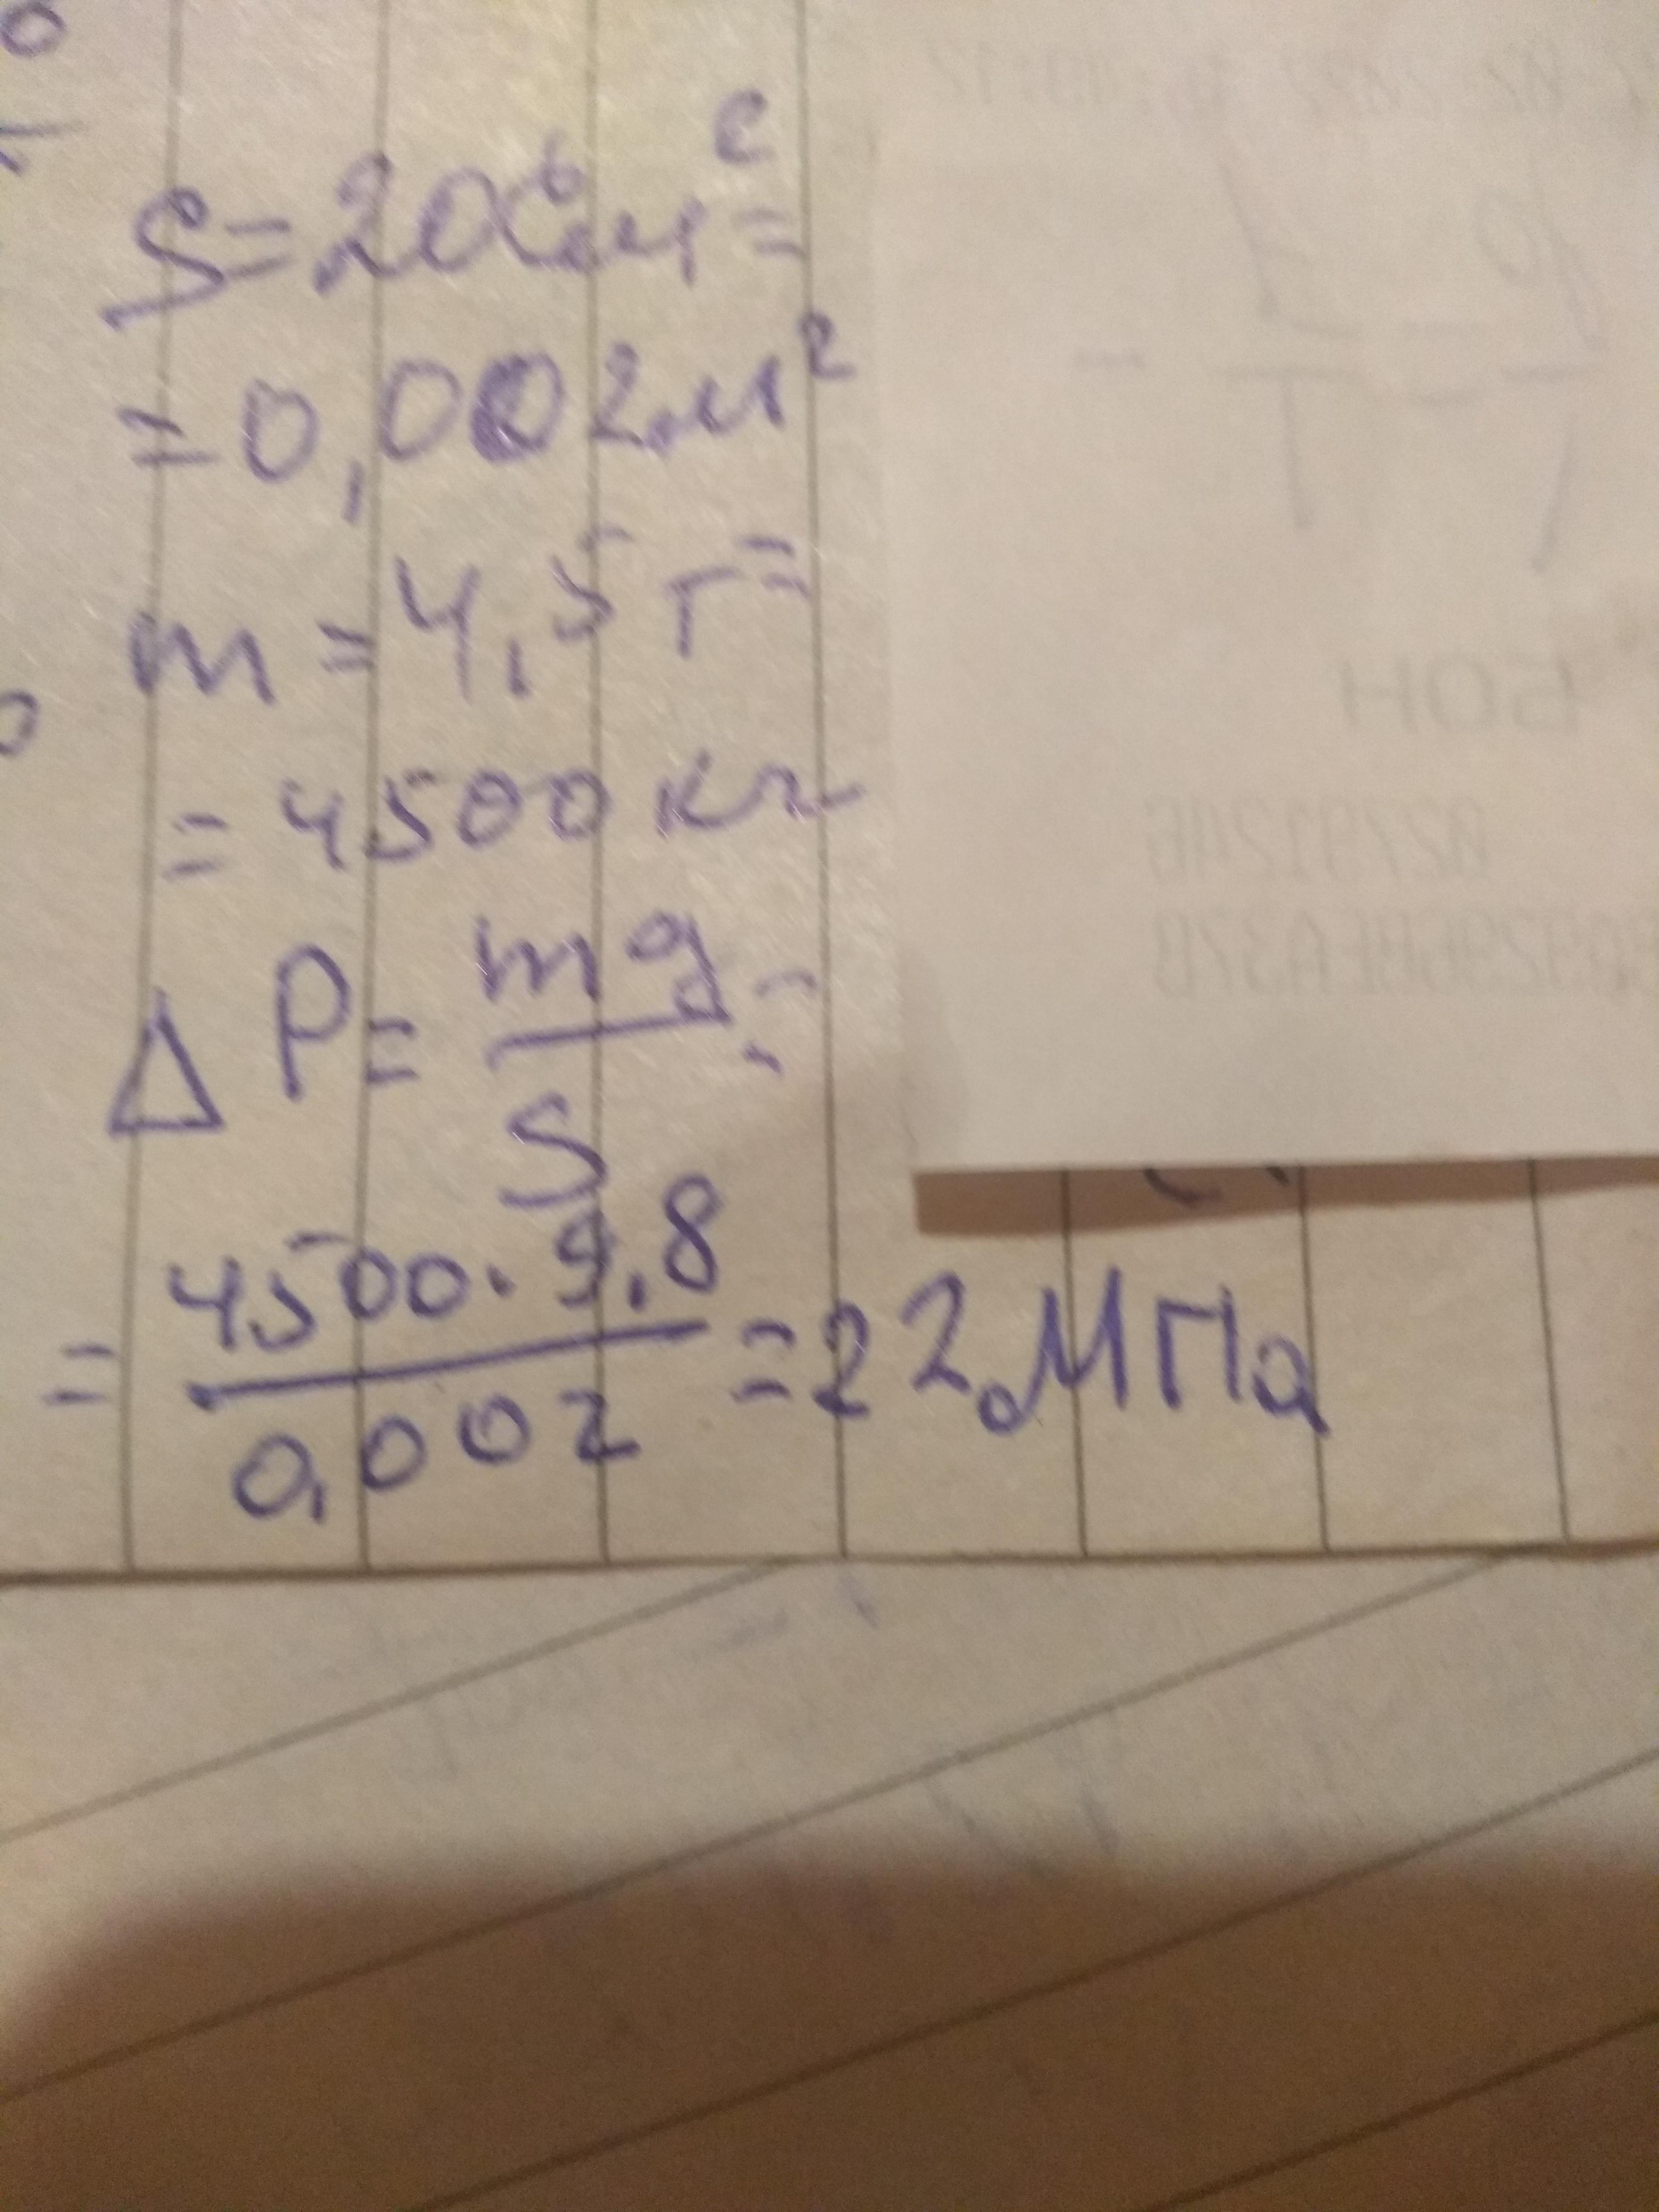 S=20см²=
=0,002м²
m=4,5т=
=4500кг
ΔP=mg/S=
=4500·9,8/0,002=22МПа